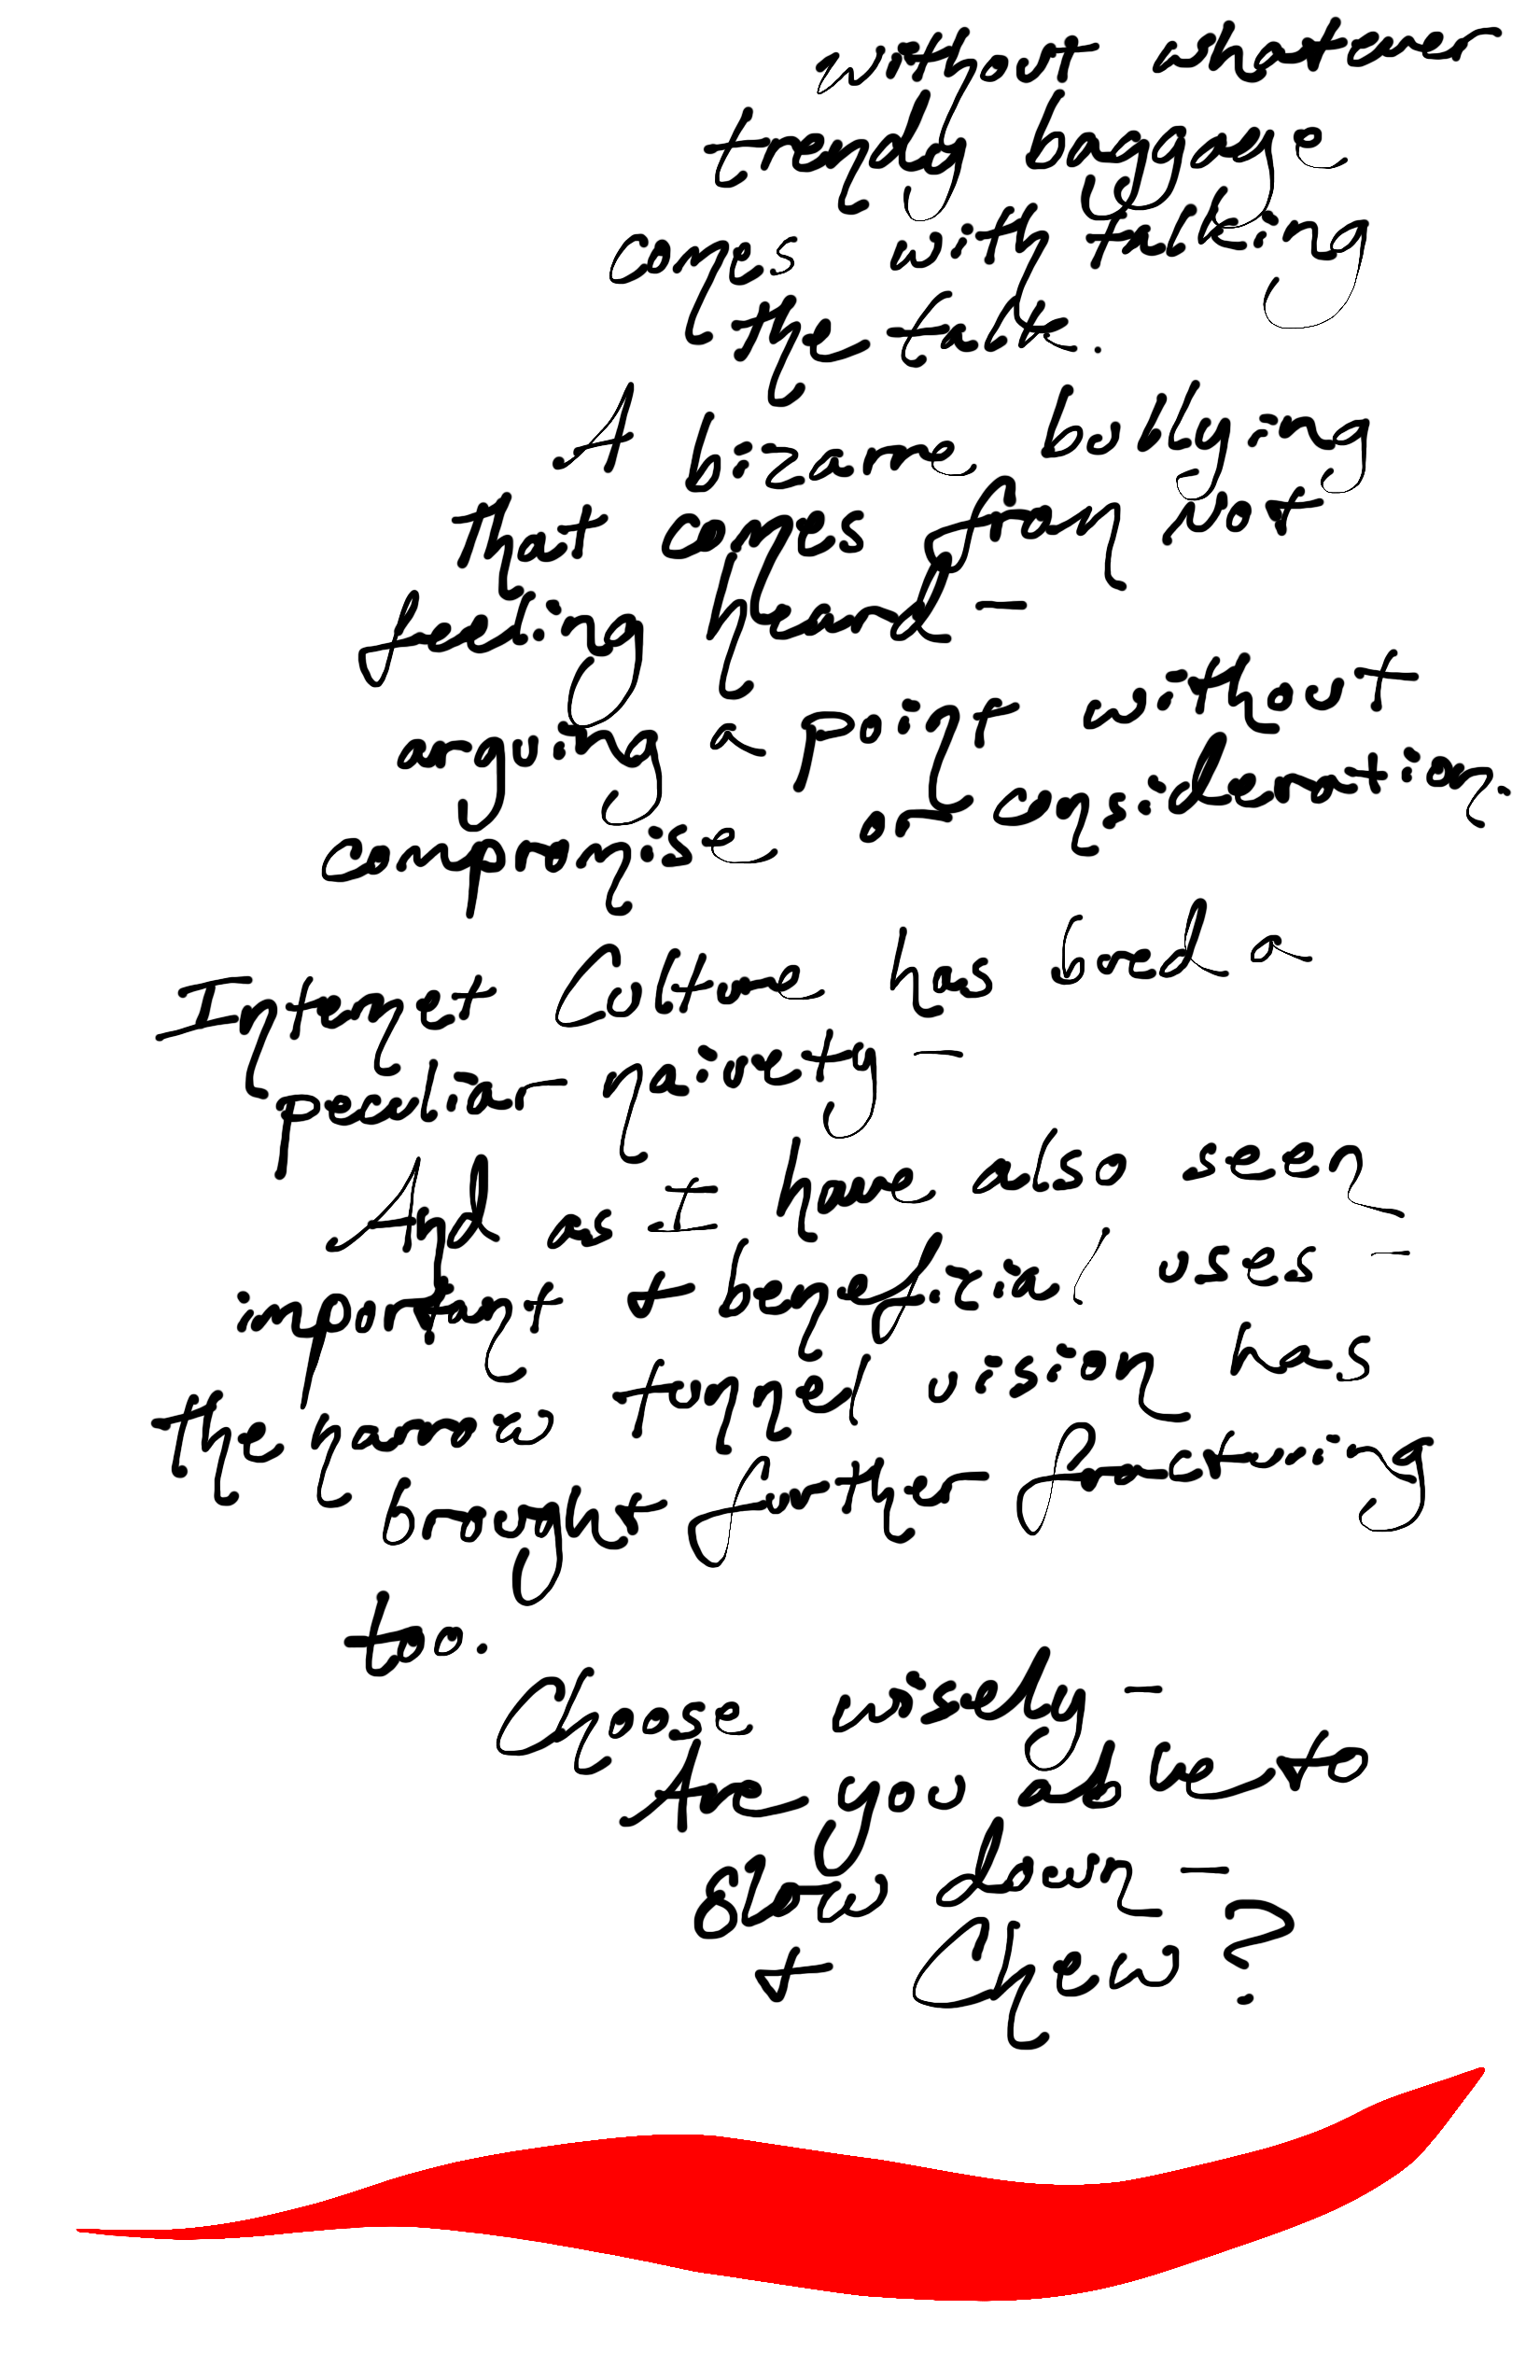 without whatever
trendy baggage
comes with talking
the talk.
A bizarre bullying
that comes from not
feeling heard—
arguing a point without
compromise or consideration.
Internet Culture has bred a
peculiar naivety—
And as I have also seen
important & beneficial uses—
the narrow tunnel vision has
brought further fracturing
too.
Choose wisely—
Are you able to
slow down—
& Chew?